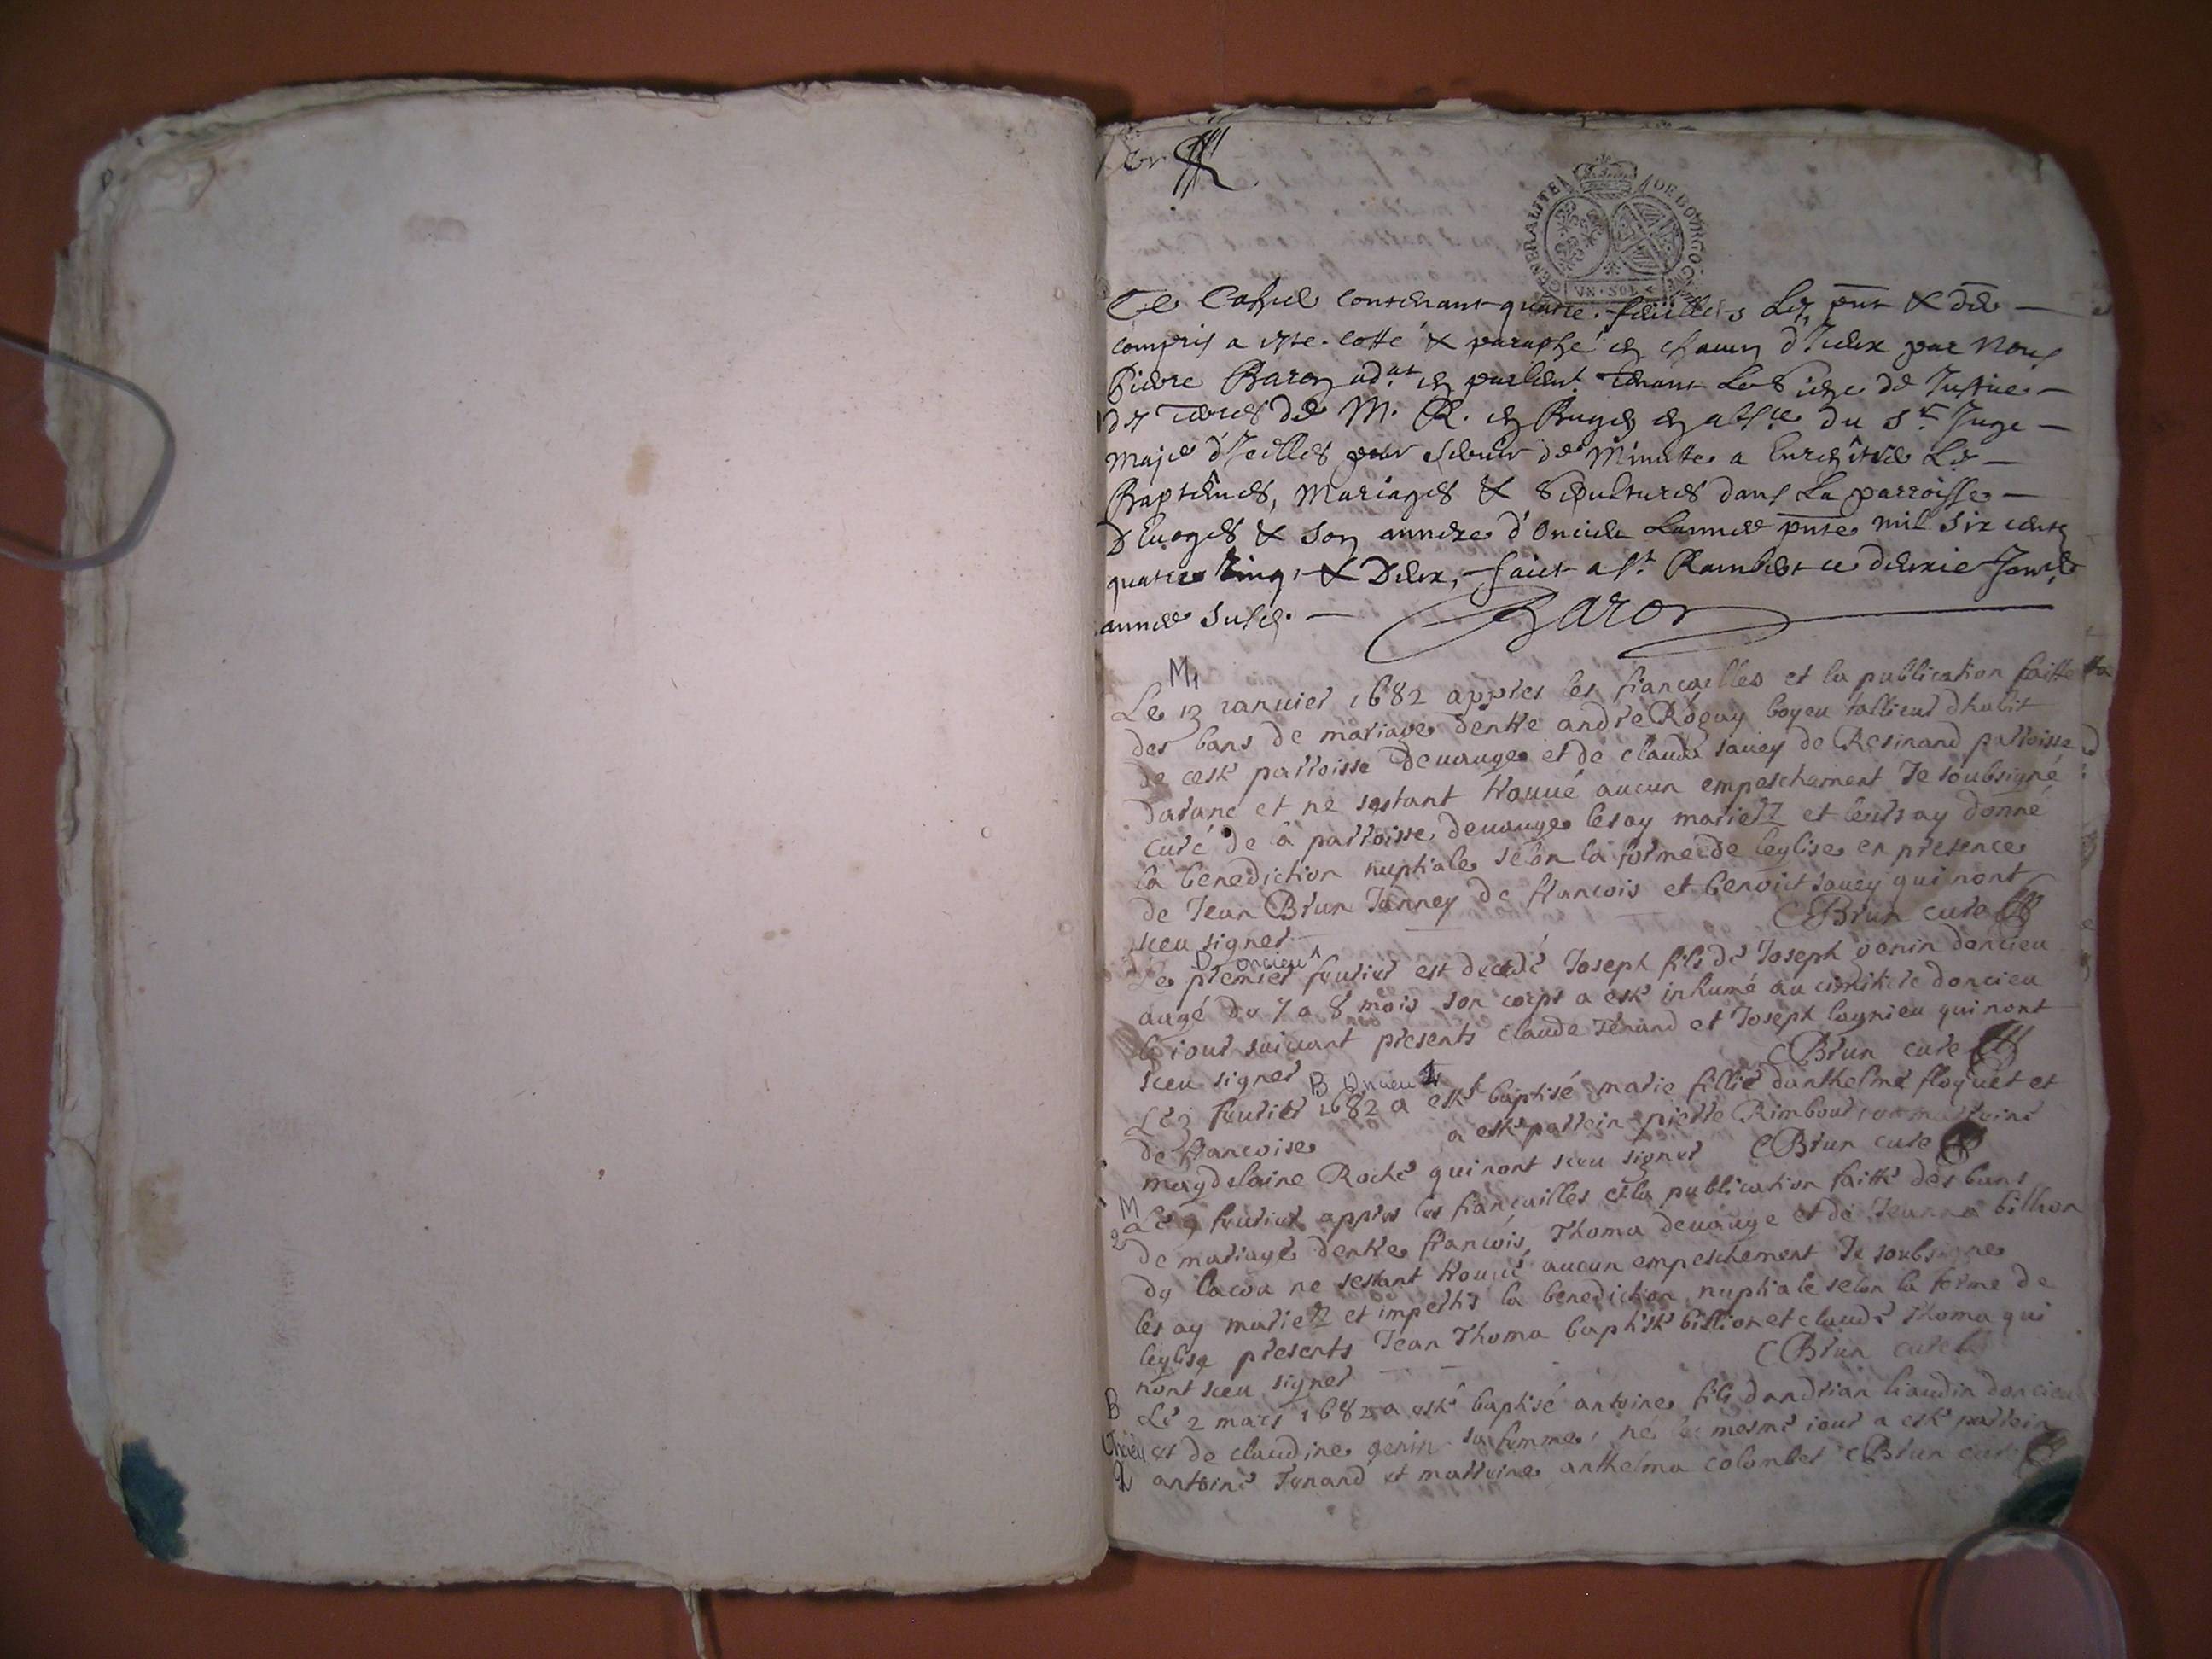 GENERALITE DE BOURGOGNE
UN SOL
Ce Cahier Contenant quatre feuillets
compris a este cotté & paraphé en chacun d'Iceux par Nous
Pierre Baron adat en parlemt tenant Le Siege de Justice
des terres de M. R. en Bugey en absce du Sr Juge
Maje d'Icelles pour servir de Minutte a Enregistre Les
Baptêmes, Mariages & Sepultures dans La parroisse
D'Evoges & son annexe d'Oncieu Lannée pnte mil six cents
quatre vingt & Deux, faict a St Rambert ce
année susd.
Baron
M 1
Le 13 ianuier 1682 appres les fiancailles et la publication faitte
des bans de mariage dentre andre Roguy boyeu tallieur dhabit
de ceste parroisse deuauge et de claudå sauey de Resinand parroisse
darane et ne sestant trouué aucun empeschement Je soubsigné
curé de la parroisse deuauge les ay mariezz et leurs ay donné
la benediction nuptiale selon la forme de leglise en presence
de Jean Brun Janney de francois et benoict sauey qui nont
sceu signer C Brun cure
D oncieu 1
Le premier feurier est decedé Joseph fils de Joseph genin doncieu
augé de 7 a 8 mois son corps a esté inhumé au cimitiere doncieu
le iour suiuant presents claude Tenand et Joseph lagnieu qui nont
sceu signer C Brun cure
B Oncieu 1
Le 3 feurier 1682 a esté baptisé marie fillie danthelme floquet et
de francoise a esté parrein pierre Rimbour marreine
magdelaine Roche qui nont sceu signer C Brun cure
M
2
Le 9 feurier appres les fiancailles et la publication faitte des bans
de mariage dentre francois Thoma deuauge et de Jeanna billion
dy lacou ne sestant trouué aucun empeschement Je soubsigne
les ay mariezz et imperti la benediction nuptiale selon la forme de
leglise presents Jean Thoma baptiste billion et claude Thoma qui
nont sceu signer C Brun cure
B
Oncieu
2
Le 2 mars 1682 a esté baptisé antoine fils dandrian liaudin doncieu
et de claudine genin sa femme, né le mesme iour a esté parrein
antoine Tenand et marreine anthelma colombet C Brun cure